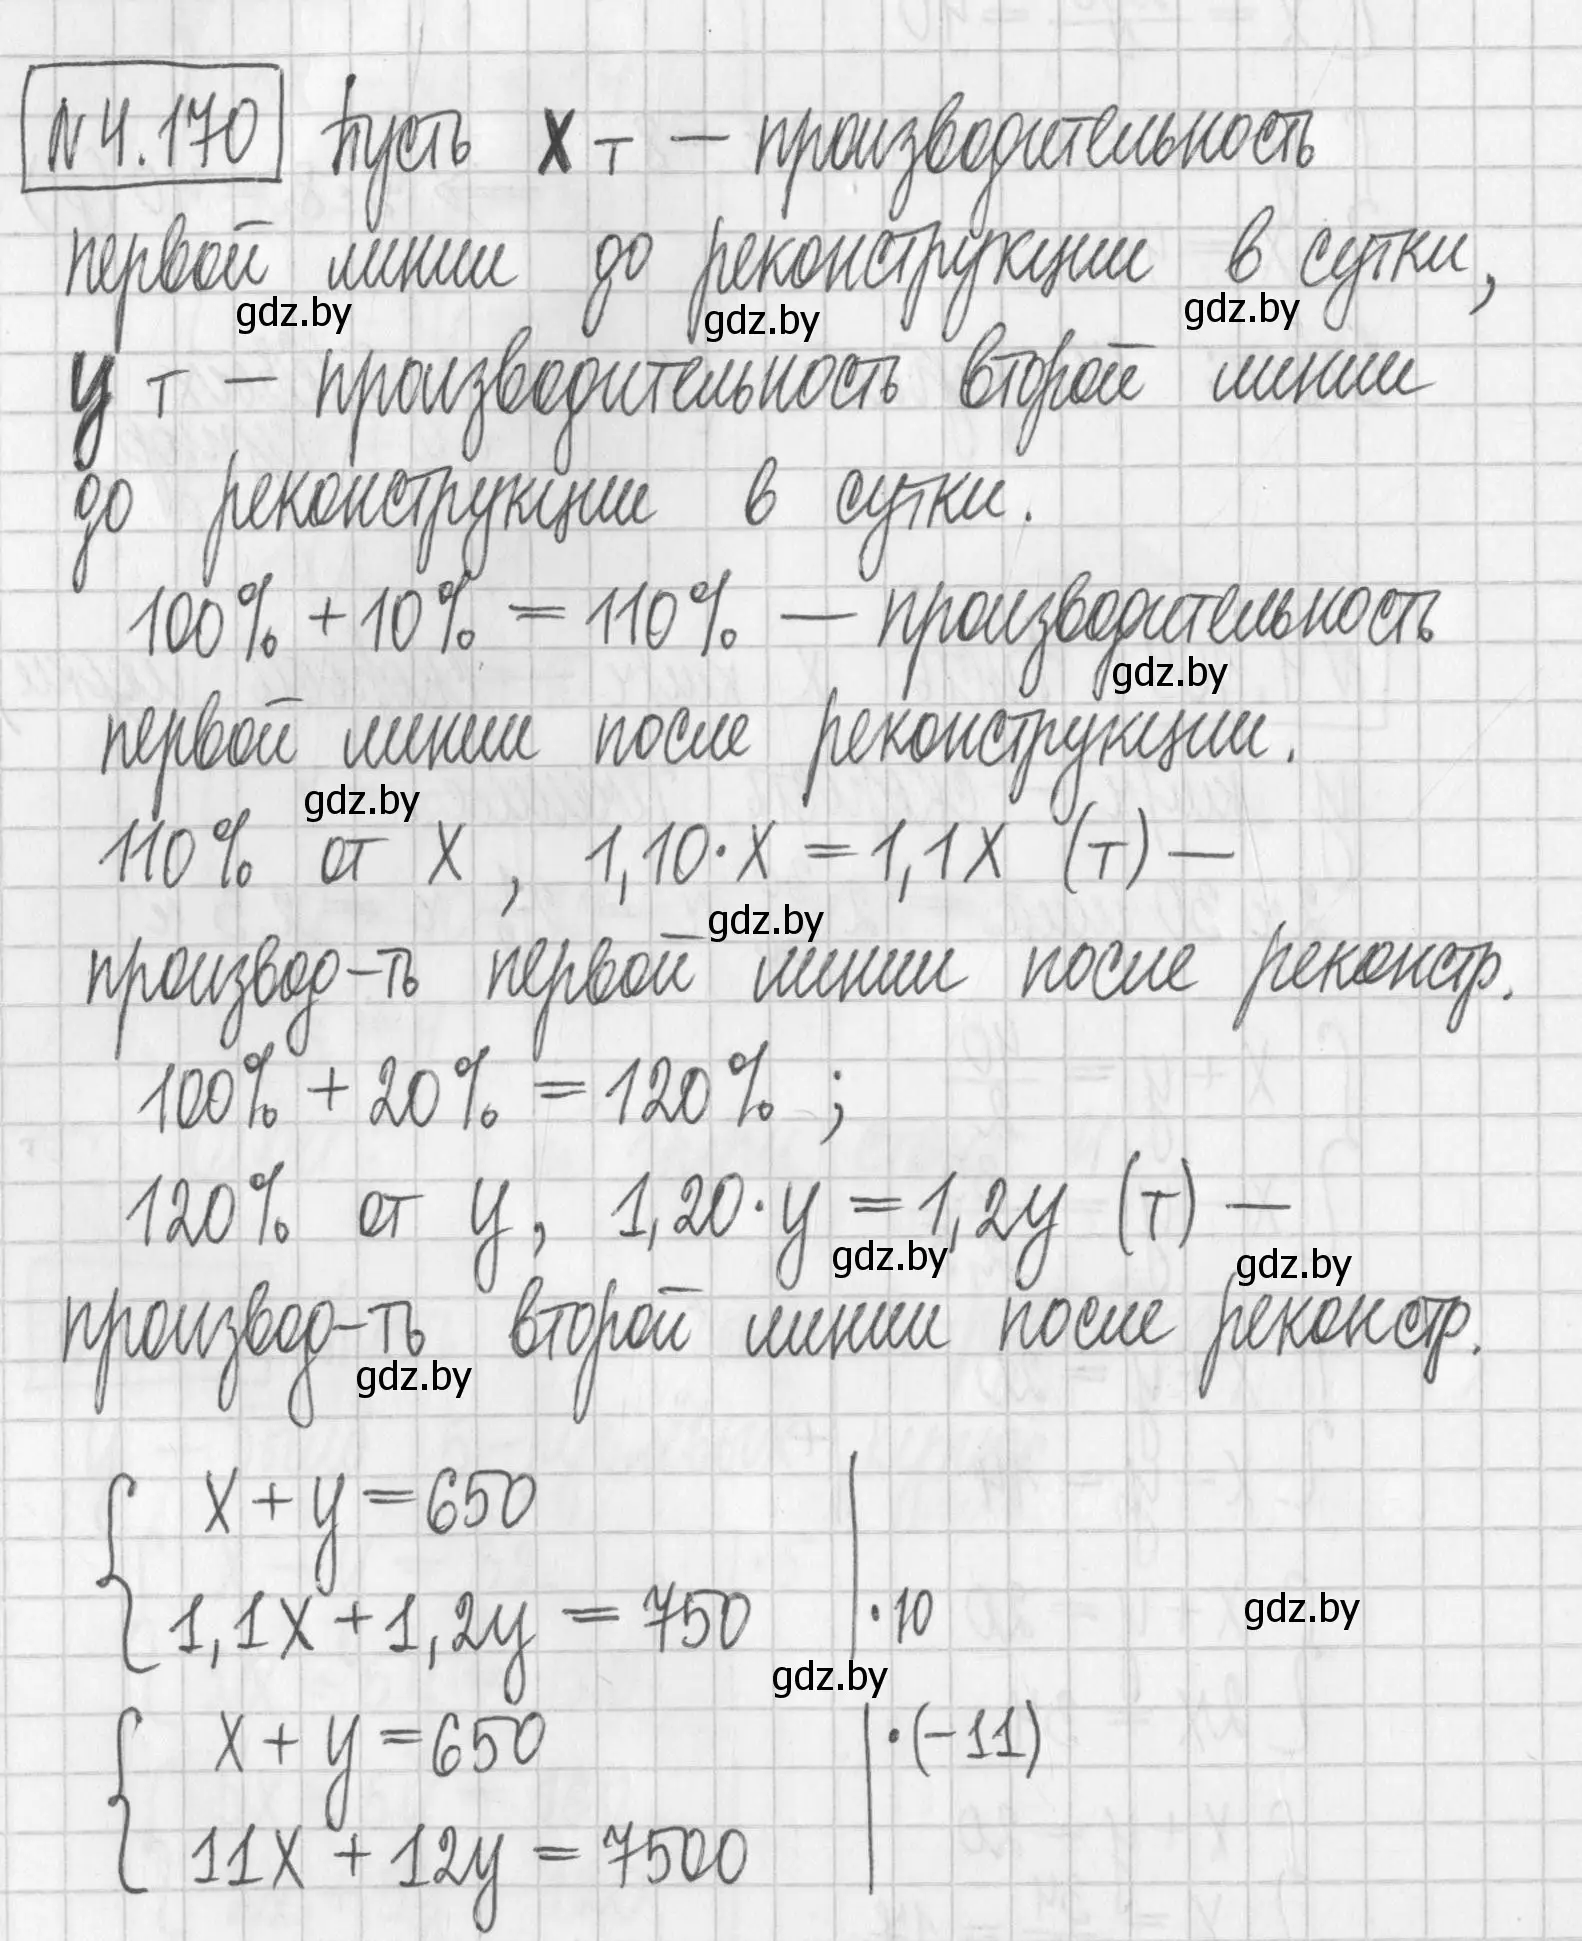 №4.170 Пусть x т — производительность
первой линии до реконструкции в сутки,
gdz.by gdz.by gdz.by
y т — производительность второй линии
до реконструкции в сутки.
100% + 10% = 110% — производительность
gdz.by
первой линии после реконструкции.
gdz.by
110% от x, 1,10·x = 1,1x (т) —
gdz.by
производ-ть первой линии после реконстр.
100% + 20% = 120% ;
120% от y, 1,20·y = 1,2y (т) —
gdz.by gdz.by
производ-ть второй линии после реконстр.
gdz.by
{ x + y = 650 |
1,1x + 1,2y = 750 | ·10
gdz.by
gdz.by
{ x + y = 650 | ·(-11)
11x + 12y = 7500 |